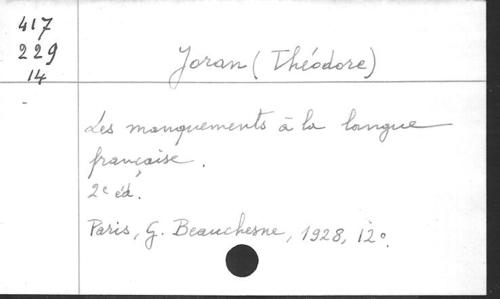 417
229
14
Joran (Théodore)
Les manquements à la langue
française.
2e éd.
Paris, G. Beauchesne, 1928, 12°.